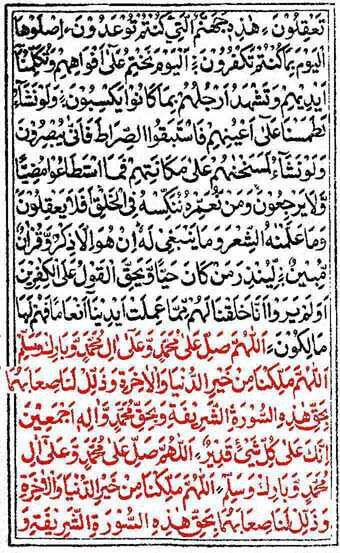 تَعْقِلُوْنَ ۝ هٰذِهٖ جَهَنَّمُ الَّتِیْ كُنْتُمْ تُوْعَدُوْنَ ۝ اِصْلَوْهَا
الْیَوْمَ بِمَا كُنْتُمْ تَكْفُرُوْنَ ۝ اَلْیَوْمَ نَخْتِمُ عَلٰۤی اَفْوَاهِهِمْ وَتُكَلِّمُنَاۤ
اَیْدِیْهِمْ وَتَشْهَدُ اَرْجُلُهُمْ بِمَا كَانُوْا یَكْسِبُوْنَ ۝ وَلَوْ نَشَآءُ
لَطَمَسْنَا عَلٰۤی اَعْیُنِهِمْ فَاسْتَبَقُوا الصِّرَاطَ فَاَنّٰی یُبْصِرُوْنَ
وَلَوْ نَشَآءُ لَمَسَخْنٰهُمْ عَلٰی مَكَانَتِهِمْ فَمَا اسْتَطَاعُوْا مُضِیًّا
وَّلَا یَرْجِعُوْنَ ۝ وَمَنْ نُّعَمِّرْهُ نُنَكِّسْهُ فِی الْخَلْقِ اَفَلَا یَعْقِلُوْنَ
وَمَا عَلَّمْنٰهُ الشِّعْرَ وَمَا یَنْۢبَغِیْ لَهٗ اِنْ هُوَ اِلَّا ذِكْرٌ وَّقُرْاٰنٌ
مُّبِیْنٌ ۝ لِّیُنْذِرَ مَنْ كَانَ حَیًّا وَّیَحِقَّ الْقَوْلُ عَلَی الْكٰفِرِیْنَ
اَوَلَمْ یَرَوْا اَنَّا خَلَقْنَا لَهُمْ مِّمَّا عَمِلَتْ اَیْدِیْنَاۤ اَنْعَامًا فَهُمْ لَهَا
مَالِكُوْنَ ۝ اَللّٰهُمَّ صَلِّ عَلٰی مُحَمَّدٍ وَّعَلٰۤی اٰلِ مُحَمَّدٍ وَّبَارِكْ وَسَلِّمْ
اَللّٰهُمَّ مَلِّكْنَا مِنْ خَیْرِ الدُّنْیَا وَالْاٰخِرَةِ وَذَلِّلْ لَنَا صِعَابَهُمَا
بِحَقِّ هٰذِهِ السُّوْرَةِ الشَّرِیْفَةِ وَبِحَقِّ مُحَمَّدٍ وَّاٰلِهٖ اَجْمَعِیْنَ
اِنَّكَ عَلٰی كُلِّ شَیْءٍ قَدِیْرٌ ۝ اَللّٰهُمَّ صَلِّ عَلٰی مُحَمَّدٍ وَّعَلٰۤی اٰلِ
مُحَمَّدٍ وَّبَارِكْ وَسَلِّمْ ۝ اَللّٰهُمَّ مَلِّكْنَا مِنْ خَیْرِ الدُّنْیَا وَالْاٰخِرَةِ
وَذَلِّلْ لَنَا صِعَابَهُمَا بِحَقِّ هٰذِهِ السُّوْرَةِ الشَّرِیْفَةِ وَ